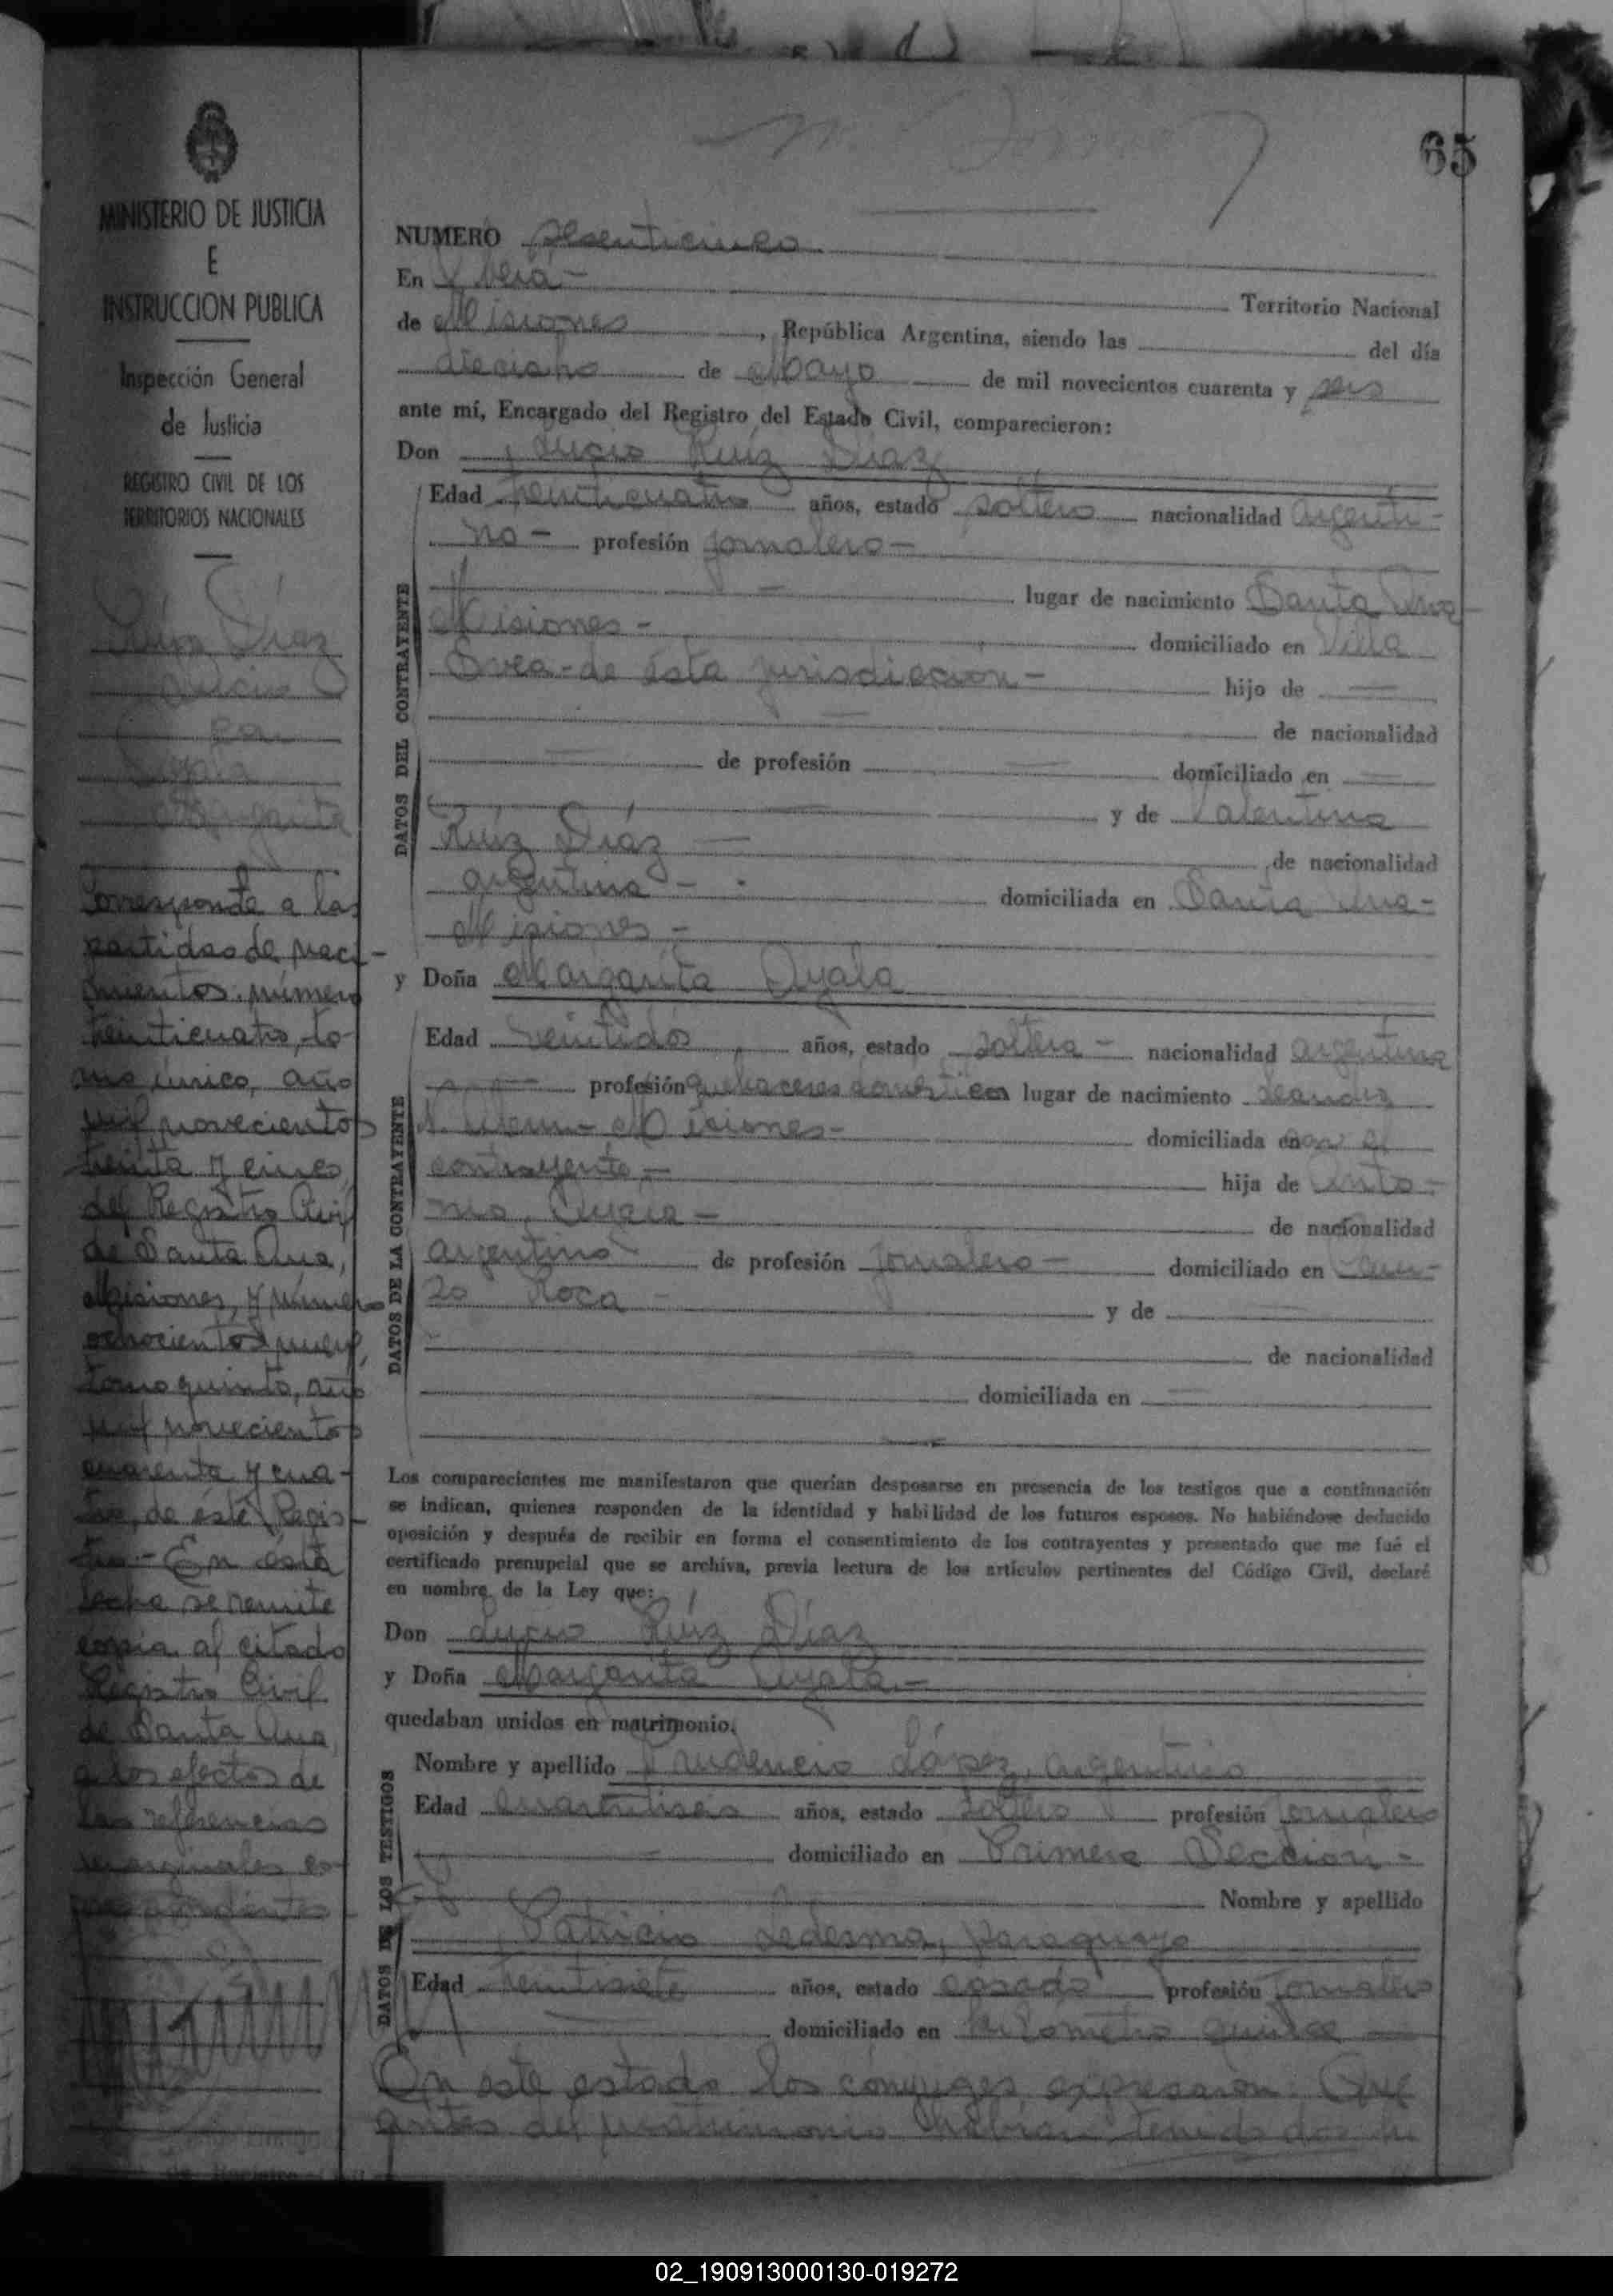 65
MINISTERIO DE JUSTICIA
E
INSTRUCCION PUBLICA
Inspección General
de Justicia
REGISTRO CIVIL DE LOS
TERRITORIOS NACIONALES
Ruíz Díaz
Lucio
con
Ayala
Margarita
Corresponde a las
partidas de naci-
mientos: número
treinticuatro, to-
mo único, año
mil novecientos
treinta y cinco
del Registro Civil
de Santa Ana,
Misiones, y número
ochocientos nueve,
tomo quinto, año
mil novecientos
cuarenta y cua-
tro, de éste Regis-
tro.- En ésta
fecha se remite
copia al citado
Registro Civil
de Santa Ana,
a los efectos de
las referencias
marginales co-
rrespondientes
NUMERO sesenticinco
En Oberá - Territorio Nacional
de Misiones, República Argentina, siendo las del día
dieciocho de Mayo de mil novecientos cuarenta y seis
ante mí, Encargado del Registro del Estado Civil, comparecieron:
Don Lucio Ruíz Díaz
DATOS DEL CONTRAYENTE
Edad treinticuatro años, estado soltero nacionalidad argenti-
no - profesión jornalero -
lugar de nacimiento Santa Ana
Misiones - domiciliado en Villa
Svea - de ésta jurisdicción - hijo de
de nacionalidad
de profesión domiciliado en
y de Valentina
Ruíz Díaz de nacionalidad
argentina - domiciliada en Santa Ana -
Misiones -
y Doña Margarita Ayala
DATOS DE LA CONTRAYENTE
Edad veintidós años, estado soltera - nacionalidad argentina
profesión quehaceres domésticos lugar de nacimiento Leandro
N. Alem - Misiones - domiciliada en con el
contrayente - hija de Anto-
nio Ayala - de nacionalidad
argentino - de profesión jornalero - domiciliado en Cam-
po Roca - y de
de nacionalidad
domiciliada en
Los comparecientes me manifestaron que querían desposarse en presencia de los testigos que a continuación
se indican, quienes responden de la identidad y habilidad de los futuros esposos. No habiéndose deducido
oposición y después de recibir en forma el consentimiento de los contrayentes y presentado que me fué el
certificado prenupcial que se archiva, previa lectura de los artículos pertinentes del Código Civil, declaré
en nombre de la Ley que:
Don Lucio Ruíz Díaz
y Doña Margarita Ayala -
quedaban unidos en matrimonio.
DATOS DE LOS TESTIGOS
Nombre y apellido Prudencio López, argentino
Edad cuarentiseis años, estado soltero profesión jornalero
domiciliado en Primera Sección -
Nombre y apellido
Patricio Ledesma, paraguayo
Edad treintisiete años, estado casado profesión jornalero
domiciliado en kilómetro quince
En este estado los cónyuges expresaron: Que
antes del matrimonio habían tenido dos hi
02_190913000130-019272